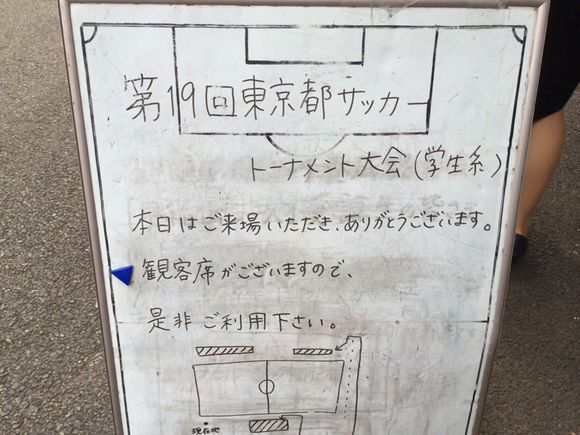 第19回東京都サッカー
トーナメント大会(学生系)
本日はご来場いただき、ありがとうございます。
観客席がございますので、
是非ご利用下さい。
現在地